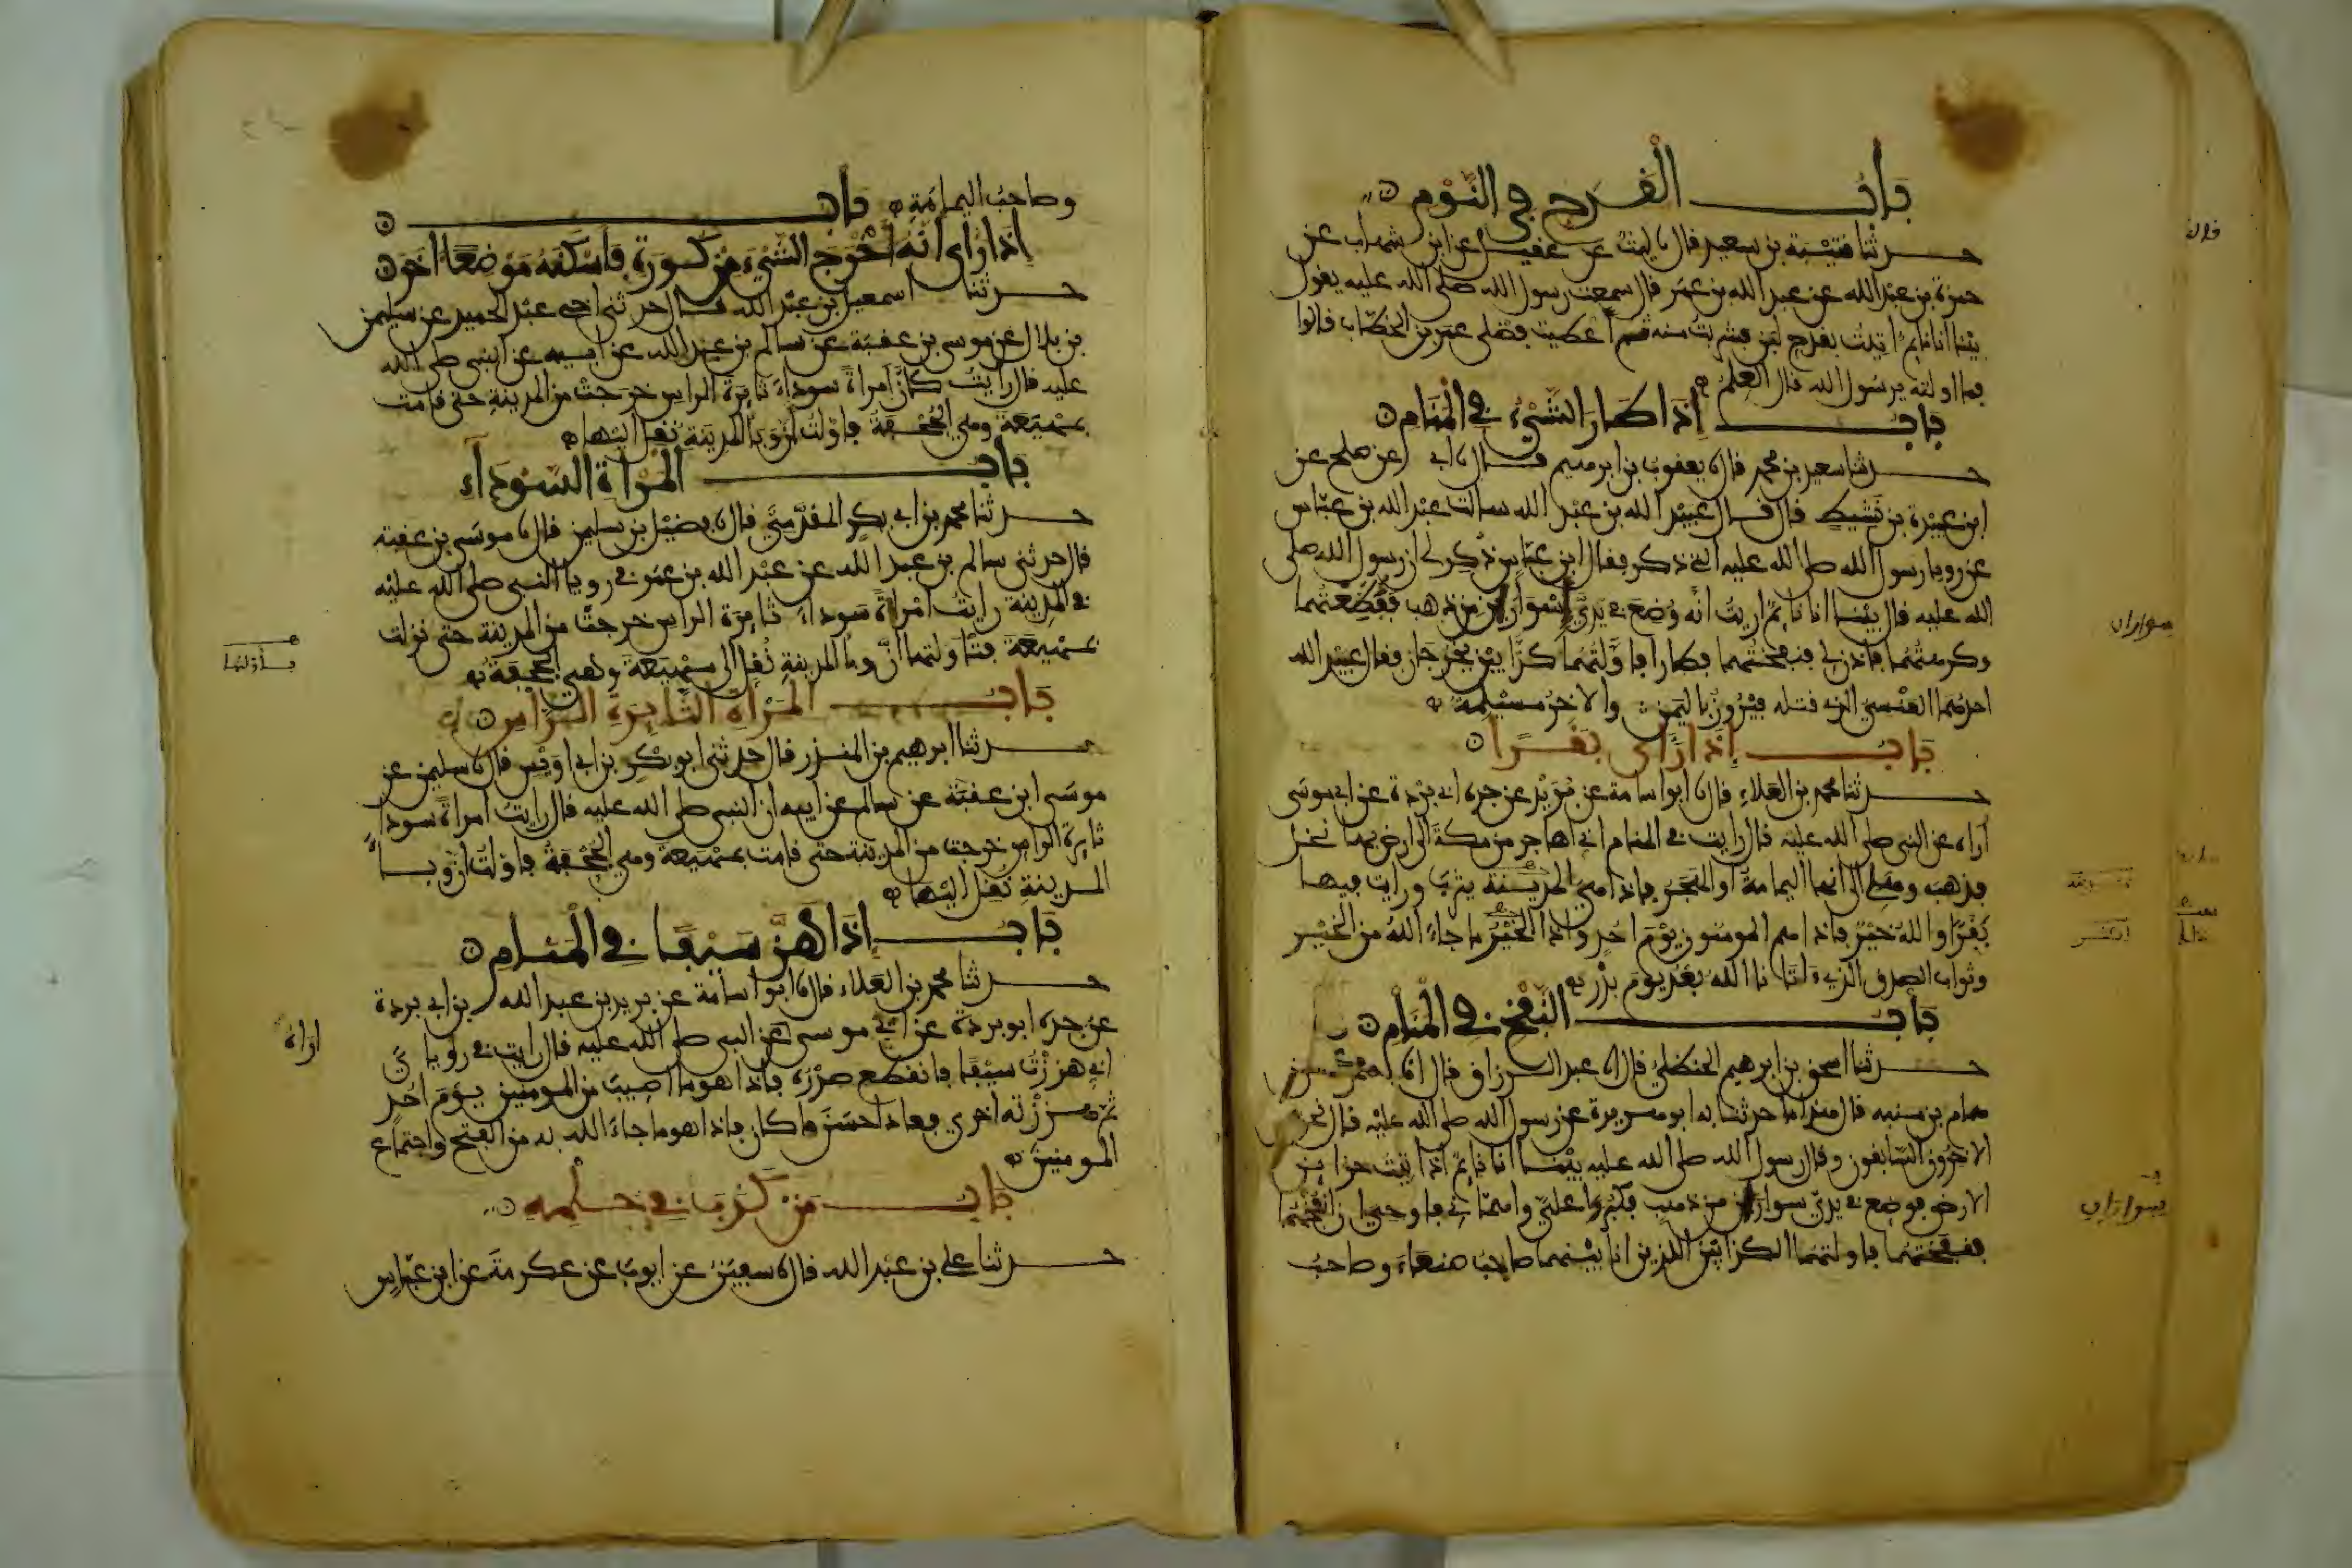 باب القدح في النوم
حدثنا قتيبة بن سعيد قال نا ليث عن عقيل عن ابن شهاب عن
حمزة بن عبد الله عن عبد الله بن عمر قال سمعت رسول الله صلى الله عليه يقول
بينا انا نايم اتيت بقدح لبن فشربت منه ثم اعطيت فضلي عمر بن الخطاب قالوا
فما اولته يرسول الله قال العلم
باب اذا طار الشيء في المنام
حدثنا سعيد بن محمد قال نا يعقوب بن ابرهيم قال نا ابي عن صلح عن
ابن عبيدة بن نشيط قال قال عبيد الله بن عبد الله سالت عبد الله بن عباس
عن رويا رسول الله صلى الله عليه التي ذكر فقال ابن عباس ذكر لي ان رسول الله صلى
الله عليه قال بينا انا نايم اريت انه وضع في يدي اسوارين من ذهب ففظعتهما
وكرهتهما فاذن لي فنفختهما فطارا فاولتهما كذابين يخرجان فقال عبيد الله
احدهما العنسي الذي قتله فيروز باليمن والاخر مسيلمة
باب اذا راى بقرا
حدثنا محمد بن العلاء قال نا ابو اسامة عن بريد عن جده ابي بردة عن ابي موسى
اراه عن النبي صلى الله عليه قال رايت في المنام اني اهاجر من مكة الى ارض بها نخل
فذهب وهلي الى انها اليمامة او الهجر فاذا هي المدينة يثرب ورايت فيها
بقرا والله خير فاذا هم المومنون يوم احد واذا الخير ما جاء الله من الخير
وثواب الصدق الذي اتانا الله بعد يوم بدر
باب النفخ في المنام
حدثنا اسحق بن ابرهيم الحنظلي قال نا عبد الرزاق قال انا معمر عن
همام بن منبه قال هذا ما حدثنا به ابو هريرة عن رسول الله صلى الله عليه قال نحن
الاخرون السابقون وقال رسول الله صلى الله عليه بينما انا نايم اذ اتيت خزاين
الارض فوضع في يدي سوارين من ذهب فكبرا علي واهماني فاوحي ان انفخهما
فنفختهما فاولتهما الكذابين اللذين انا بينهما صاحب صنعاء وصاحب
قال
سواران
سواران
وصاحب اليمامة باب
اذا راى انه اخرج الشيء من كورة فاسكنه موضعا اخر
حدثنا اسمعيل بن عبد الله قال حدثني اخي عبد الحميد عن سليمن
بن بلال عن موسى بن عقبة عن سالم بن عبد الله عن ابيه عن النبي صلى الله
عليه قال رايت كان امراة سوداء ثايرة الراس خرجت من المدينة حتى قامت
بمهيعة وهي الجحفة فاولت ان وبا المدينة نقل اليها
باب المراة السوداء
حدثنا محمد بن ابي بكر المقدمي قال نا فضيل بن سليمن قال نا موسى بن عقبة
قال حدثني سالم بن عبد الله عن عبد الله بن عمر في رويا النبي صلى الله عليه
في المدينة رايت امراة سوداء ثايرة الراس خرجت من المدينة حتى نزلت
بمهيعة فتاولتها ان وبا المدينة نقل الى مهيعة وهي الجحفة
باب المراة الثايرة الراس
حدثنا ابرهيم بن المنذر قال حدثني ابو بكر بن ابي اويس قال نا سليمن عن
موسى ابن عقبة عن سالم عن ابيه ان النبي صلى الله عليه قال رايت امراة سوداء
ثايرة الراس خرجت من المدينة حتى قامت بمهيعة وهي الجحفة فاولت ان وبا
المدينة نقل اليها
باب اذا هز سيفا في المنام
حدثنا محمد بن العلاء قال نا ابو اسامة عن بريد بن عبد الله بن ابي بردة
عن جده ابو بردة عن ابي موسى عن النبي صلى الله عليه قال رايت في روياي
اني هززت سيفا فانقطع صدره فاذا هو ما اصيب من المومنين يوم احد
ثم هززته اخرى فعاد احسن ما كان فاذا هو ما جاء الله به من الفتح واجتماع
المومنين
باب من كذب في حلمه
حدثنا علي بن عبد الله قال نا سفين عن ايوب عن عكرمة عن ابن عباس
فاولتها
اراه